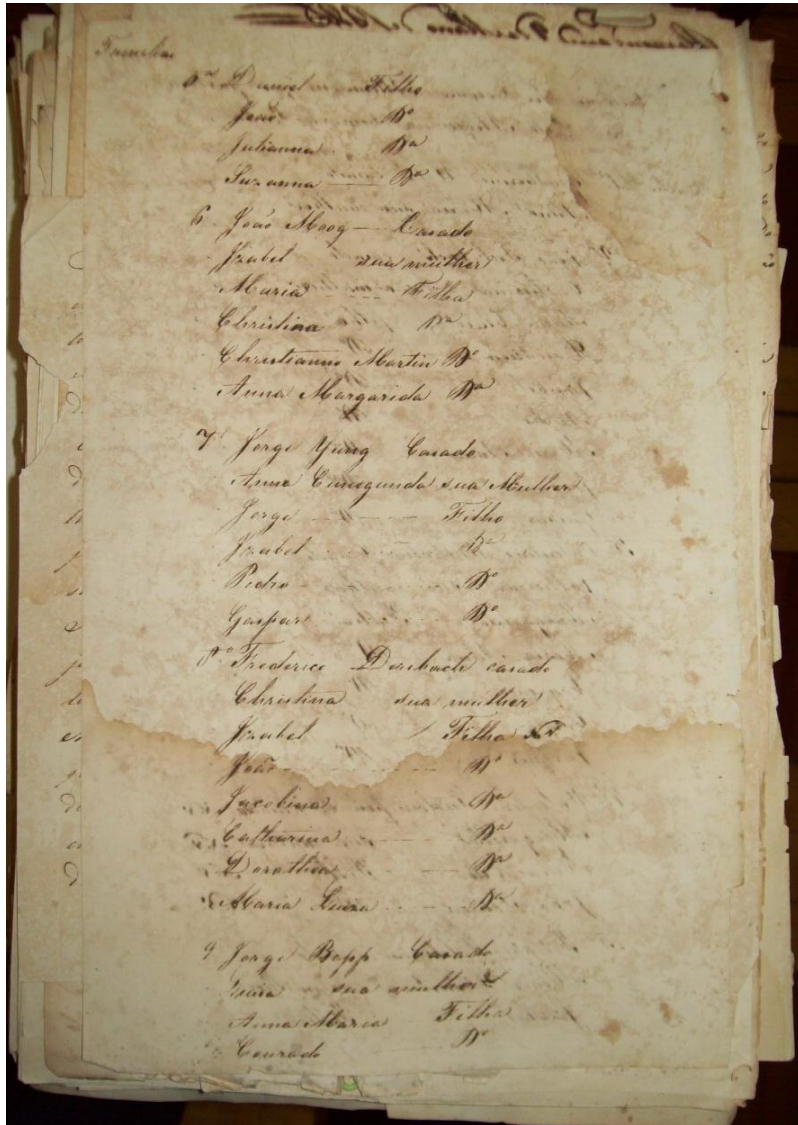 Familias
5ª Daniel Filho
João Dº
Julianna Dª
Suzanna — Dª
6 João Moog — Casado
Izabel sua mulher
Maria — Filha
Christina Dª
Christianno Martin Dº
Anna Margarida Dª
7 Jorge Yung Casado
Anna Cunegunda sua Mulher
Jorge — " — Filho
Izabel — Dª
Pedro — Dº
Gaspar — Dº
8ª Frederico casado
Christina sua mulher
Izabel Filha
João — Dº
Jacobina Dª
Catharina — Dª
Dorothea — Dª
Maria Luiza — Dª
9 Jorge Bopp Casado
sua mulher
Anna Maria Filha
Conrado — Dº